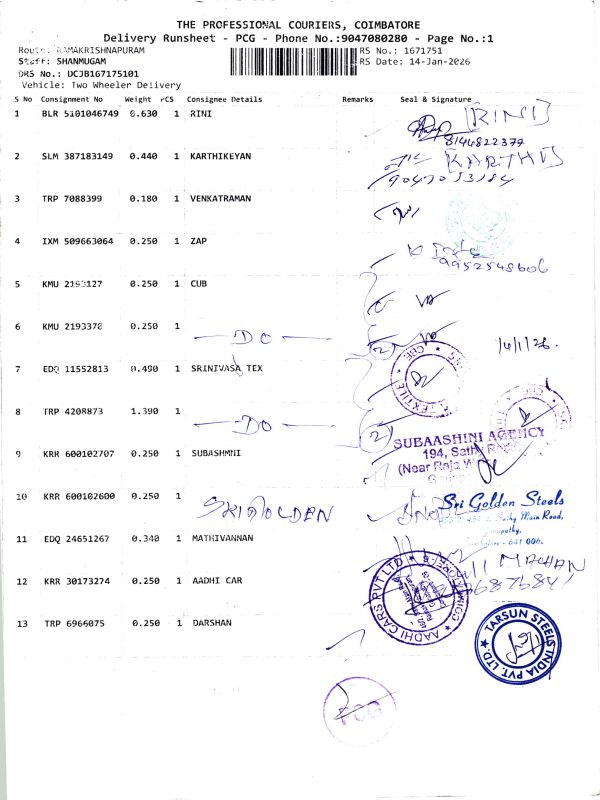 THE PROFESSIONAL COURIERS, COIMBATORE
Delivery Runsheet - PCG - Phone No.:9047080280 - Page No.:1
Route: RAMAKRISHNAPURAM
RS No.: 1671751
Staff: SHANMUGAM
RS Date: 14-Jan-2026
DRS No.: DCJB167175101
Vehicle: Two Wheeler Delivery
S No Consignment No Weight PCS Consignee Details Remarks Seal & Signature
1 BLR 5101046749 0.630 1 RINI
[RINI]
8144822377
2 SLM 387183149 0.440 1 KARTHIKEYAN
3 TRP 7088399 0.180 1 VENKATRAMAN
4 IXM 509663064 0.250 1 ZAP
9952548606
5 KMU 2193127 0.250 1 CUB
6 KMU 2193378 0.250 1
— DO —
(2)
14/1/26.
7 EDQ 11552813 0.490 1 SRINIVASA TEX
8 TRP 4208873 1.390 1
— DO —
(2)
SUBAASHINI AGENCY
194, Sathy
(Near Raja
9 KRR 600102707 0.250 1 SUBASHMNI
10 KRR 600102600 0.250 1
SRI GOLDEN
Sri Golden Steels
Sathy Main Road,
641 006.
11 EDQ 24651267 0.340 1 MATHIVANNAN
12 KRR 30173274 0.250 1 AADHI CAR
AADHI CARS PVT LTD
13 TRP 6966075 0.250 1 DARSHAN
TARSUN STEELS INDIA PVT. LTD.
PCG